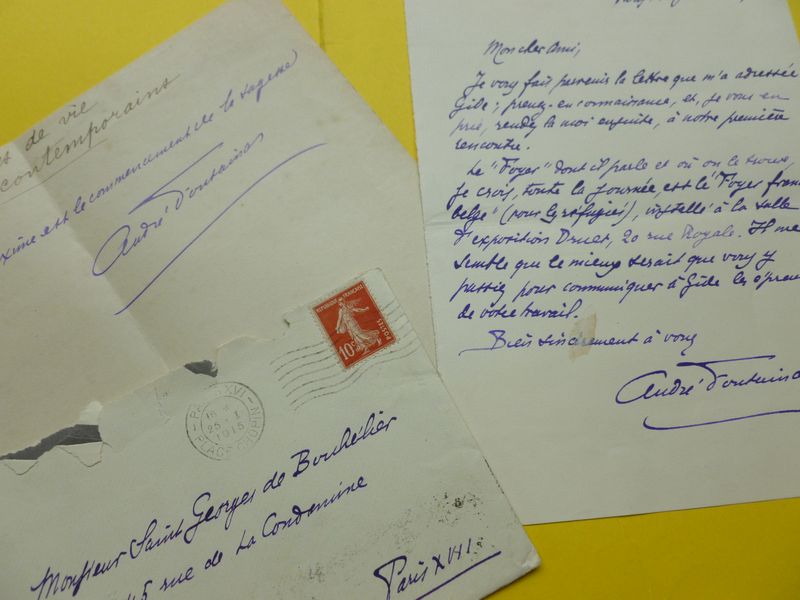 es de vie
contemporains
est le commencement de la sagesse
André Fontainas
REPUBLIQUE FRANÇAISE
POSTES
10c
PARIS XVI
PLACE CHOPIN
25 1
1915
Monsieur Saint Georges de Bouhélier
45 rue de La Condamine
Paris XVII
Mon cher Ami,
Je vous fait parvenir la lettre que m'a adressée
Gide; prenez-en connaissance, et, je vous en
prie, rendez la moi ensuite, à notre première
rencontre.
Le "Foyer" dont il parle et où on le trouve,
je crois, toute la journée, est le "Foyer fran
belge" (pour les réfugiés), installé à la salle
d'exposition Druet, 20 rue Royale. Il me
semble que le mieux serait que vous y
passiez pour communiquer à Gide les épreu
de votre travail.
Bien sincèrement à vous
André Fontainas